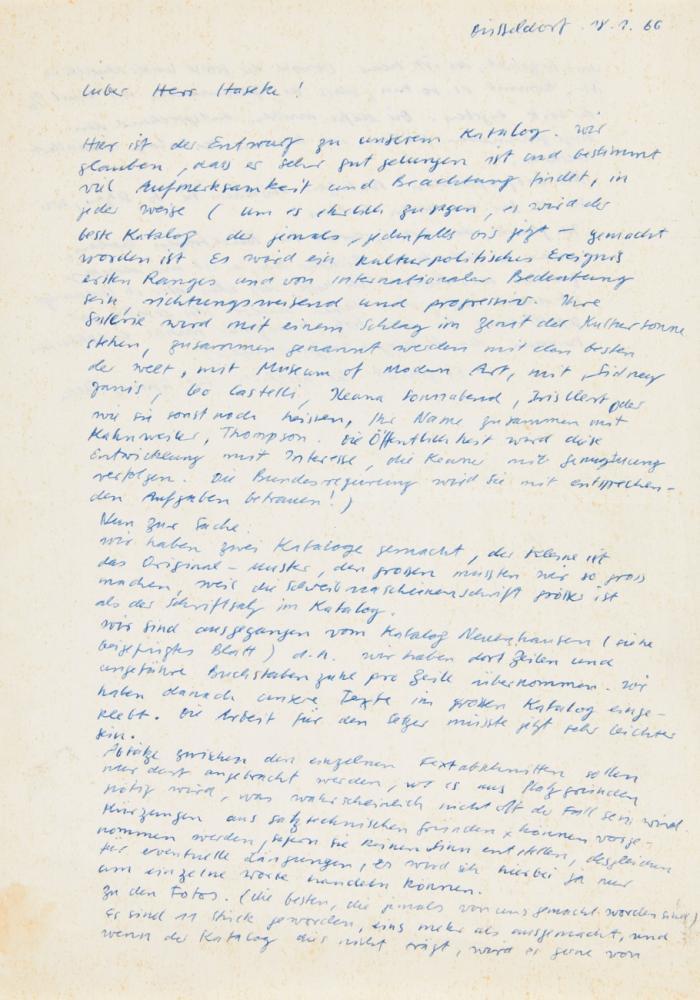 Düsseldorf 18.1.66
Lieber Herr Haseke!
Hier ist der Entwurf zu unserem Katalog. Wir
glauben, dass er sehr gut gelungen ist und bestimmt
viel Aufmerksamkeit und Beachtung findet, in
jeder weise (um es ehrlich zu sagen, es wird der
beste Katalog der jemals, jedenfalls bis jetzt – gemacht
worden ist. Es wird ein kulturpolitisches Ereignis
ersten Ranges und von internationaler Bedeutung
sein, richtungsweisend und progressiv. Ihre
Galerie wird mit einem Schlag im Zenit der Kultursonne
stehen, zusammen genannt werden mit den besten
der welt, mit Museum of modern Art, mit Sidney
Janis, Leo Castelli, Ileana Sonnabend, Iris Clert oder
wie sie sonst noch heissen, Ihr Name zusammen mit
Kahnweiler, Thompson. Die Öffentlichkeit wird diese
Entwicklung mit Interesse, die Kenner mit Genugtuung
verfolgen. Die Bundesregierung wird Sie mit entsprechen-
den Aufgaben betrauen!)
Nun zur Sache.
wir haben zwei Kataloge gemacht, der kleine ist
das Original-Muster, den großen mussten wir so gross
machen, weil die Schreibmaschinenschrift größer ist
als der Schriftsatz im Katalog.
wir sind ausgegangen vom Katalog Neuenhausen (siehe
beigefügtes Blatt) d.h. wir haben dort Zeilen und
ungefähre Buchstabenzahl pro Zeile übernommen. wir
haben danach unsere Texte im großen Katalog einge-
klebt. Die Arbeit für den Setzer müsste jetzt sehr leichter
sein.
Absätze zwischen den einzelnen Textabschnitten sollen
nur dort angebracht werden, wo es aus Platzgründen
nötig wird, was wahrscheinlich nicht oft der Fall sein wird.
Kürzungen aus satztechnischen Gründen können vorge-
nommen werden, sofern sie keinen Sinn entstellen, desgleichen
für eventuelle Längungen, es wird sich hierbei ja nur
um einzelne worte handeln können.
Zu den Fotos. (die besten, die jemals von uns gemacht worden sind)
Es sind 11 stück geworden, eins mehr als ausgemacht, und
wenn der Katalog dies nicht trägt, wird es gerne von